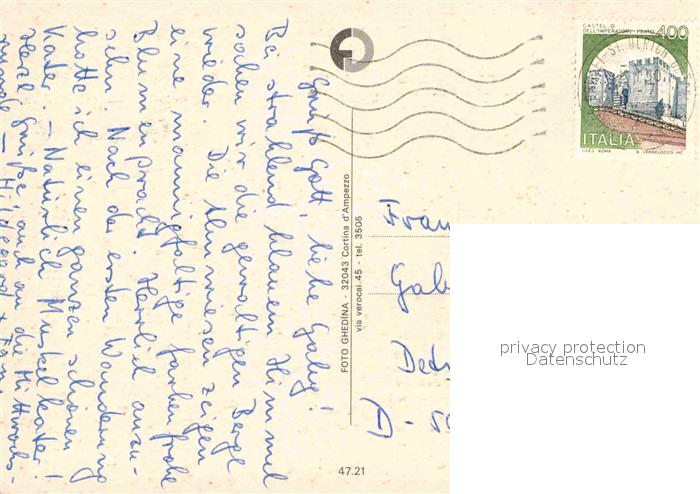 Grüß Gott, liebe Gaby!
Bei strahlend blauem Himmel
sahen wir die gewaltigen Berge
wieder. Die Almwiesen zeigen
eine mannigfaltige farbenfrohe
Blumenpracht. Herrlich anzu-
sehn. Nach der ersten Wanderung
hatte ich einen ganzen schönen
Kater. – Natürlich Muskelkater!
Herzl. Grüße, auch an die Mittwochs-
runde – Hildegard +
FOTO GHEDINA - 32043 Cortina d'Ampezzo
via verocai 45 - tel. 3505
47.21
CASTELLO
DELL'IMPERATORE - PRATO
400
ITALIA
I.P.Z.S. ROMA
Frau
Gab
A - 50
privacy protection
Datenschutz